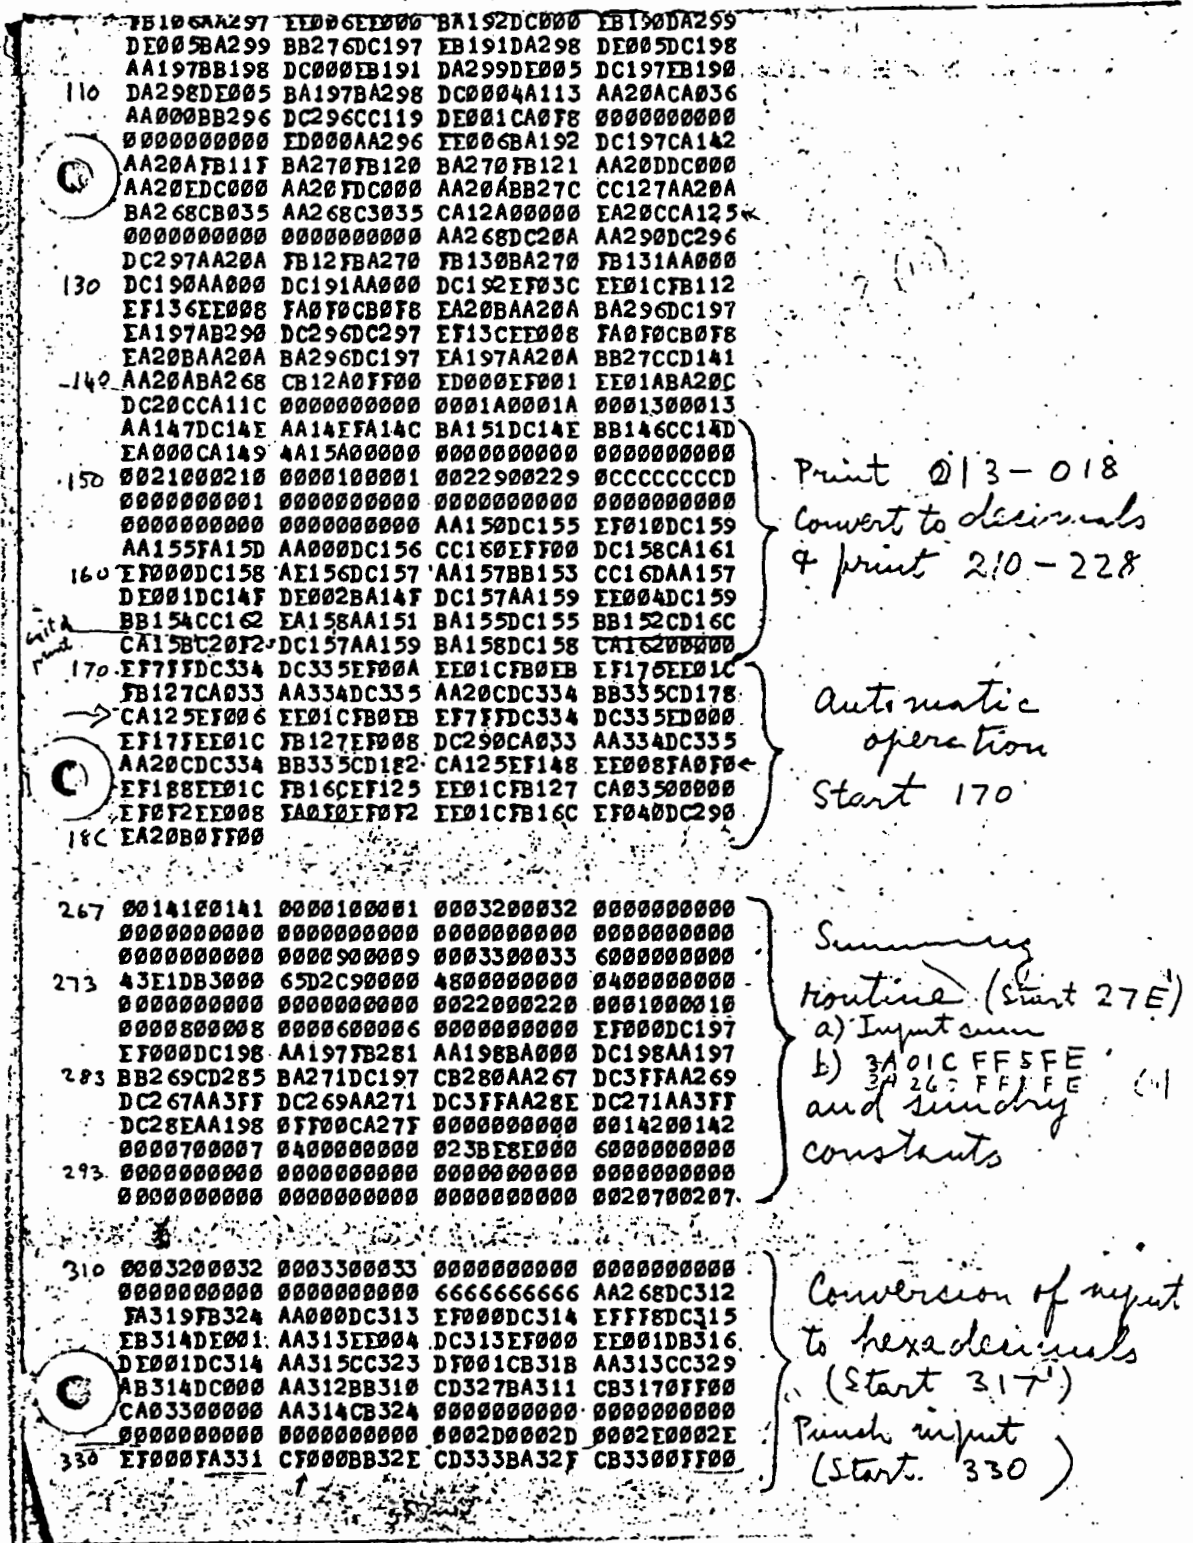 FB106AA297 EE006EE000 BA192DC000 EB190DA299
DE005BA299 BB276DC197 EB191DA298 DE005DC198
AA197BB198 DC000EB191 DA299DE005 DC197EB190
110 DA298DE005 BA197BA298 DC0004A113 AA20ACA036
AA000BB296 DC296CC119 DE001CA0F8 0000000000
0000000000 ED000AA296 EE006BA192 DC197CA142
AA20AFB11F BA270FB120 BA270FB121 AA20DDC000
AA20EDC000 AA20FDC000 AA20ABB27C CC127AA20A
BA268CB035 AA268C3035 CA12A00000 EA20CCA125
0000000000 0000000000 AA268DC20A AA290DC296
DC297AA20A FB12FBA270 FB130BA270 FB131AA000
130 DC190AA000 DC191AA000 DC192EF03C EE01CFB112
EF136EE008 FA0F0CB0F8 EA20BAA20A BA296DC197
EA197AB290 DC296DC297 EF13CEE008 FA0F0CB0F8
EA20BAA20A BA296DC197 EA197AA20A BB27CCD141
140 AA20ABA268 CB12A0FF00 ED000EF001 EE01ABA20C
DC20CCA11C 0000000000 0001A0001A 0001300013
AA147DC14E AA14EFA14C BA151DC14E BB146CC14D
EA000CA149 4A15A00000 0000000000 0000000000
150 0021000210 0000100001 0022900229 0CCCCCCCCD
0000000001 0000000000 0000000000 0000000000
0000000000 0000000000 AA150DC155 EF010DC159
AA155FA15D AA000DC156 CC160EFF00 DC158CA161
160 EF000DC158 AE156DC157 AA157BB153 CC16DAA157
DE001DC14F DE002BA14F DC157AA159 EE004DC159
BB154CC162 EA158AA151 BA155DC155 BB152CD16C
CA15BC20F2 DC157AA159 BA158DC158 CA16200000
Print 013-018
Convert to decimals
& print 210-228
print
170 EF7FFDC334 DC335EF00A EE01CFB0EB EF175EE01C
FB127CA033 AA334DC335 AA20CDC334 BB335CD178
CA125EF006 EE01CFB0EB EF7FFDC334 DC335ED000
EF17FEE01C FB127EF008 DC290CA033 AA334DC335
AA20CDC334 BB335CD182 CA125EF148 EE008FA0F0
EF188EE01C FB16CEF125 EE01CFB127 CA03500000
EF0F2EE008 FA0F0EF0F2 EE01CFB16C EF040DC290
18C EA20B0FF00
Automatic
operation
Start 170
267 0014100141 0000100001 0003200032 0000000000
0000000000 0000000000 0000000000 0000000000
0000000000 0000900009 0003300033 6000000000
273 43E1DB3000 65D2C90000 4800000000 0400000000
0000000000 0000000000 0022000220 0001000010
0000800008 0000600006 0000000000 EF000DC197
EF000DC198 AA197FB281 AA198BA000 DC198AA197
283 BB269CD285 BA271DC197 CB280AA267 DC3FFAA269
DC267AA3FF DC269AA271 DC3FFAA28E DC271AA3FF
DC28EAA198 0FF00CA27F 0000000000 0014200142
0000700007 0400000000 023BE8E000 6000000000
293 0000000000 0000000000 0000000000 0000000000
0000000000 0000000000 0000000000 0020700207
Summing
routine (Start 27E)
a) Input sum
b) 3A01C FF5FE
and sundry
constants
310 0003200032 0003300033 0000000000 0000000000
0000000000 0000000000 6666666666 AA268DC312
FA319FB324 AA000DC313 EF000DC314 EFFF8DC315
EB314DE001 AA313EE004 DC313EF000 EE001DB316
DE001DC314 AA315CC323 DF001CB31B AA313CC329
AB314DC000 AA312BB310 CD327BA311 CB3170FF00
CA03300000 AA314CB324 0000000000 0000000000
0000000000 0000000000 0002D0002D 0002E0002E
330 EF000FA331 CF000BB32E CD333BA32F CB3300FF00
Conversion of input
to hexadecimals
(Start 317)
Punch input
(Start 330)